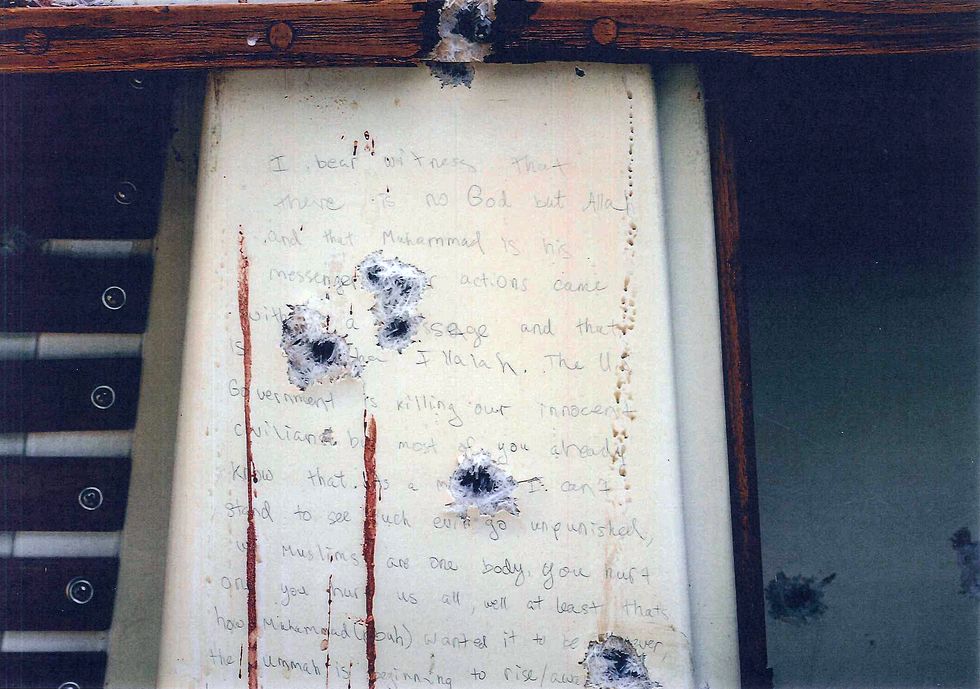 I bear witness that
there is no God but Allah
and that Muhammad is his
messenger r actions came
with a ssage and that
is tha Illalah. The U
Government is killing our innocent
civilians bu most of you already
know that. As a m I can't
stand to see such evil go unpunished,
we Muslims are one body, you hurt
one you hurt us all, well at least thats
how Muhammad (pbuh) wanted it to be ever,
the ummah is beginning to rise/awa